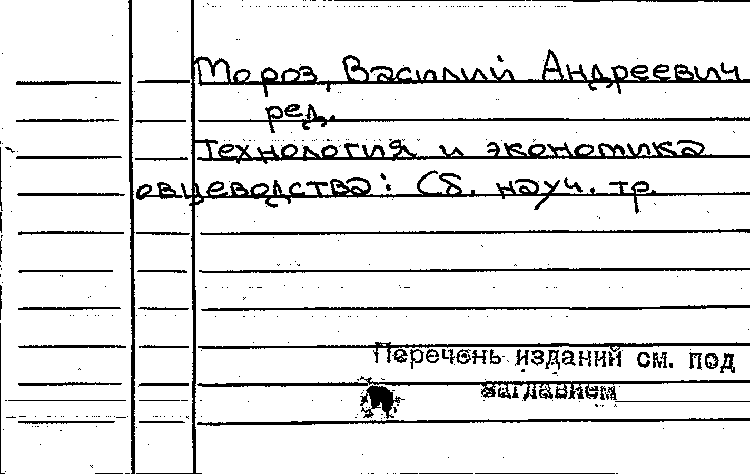 Мороз, Василий Андреевич
ред.
Технология и экономика
овцеводства: Сб. науч. тр.
Перечень изданий см. под
заглавием